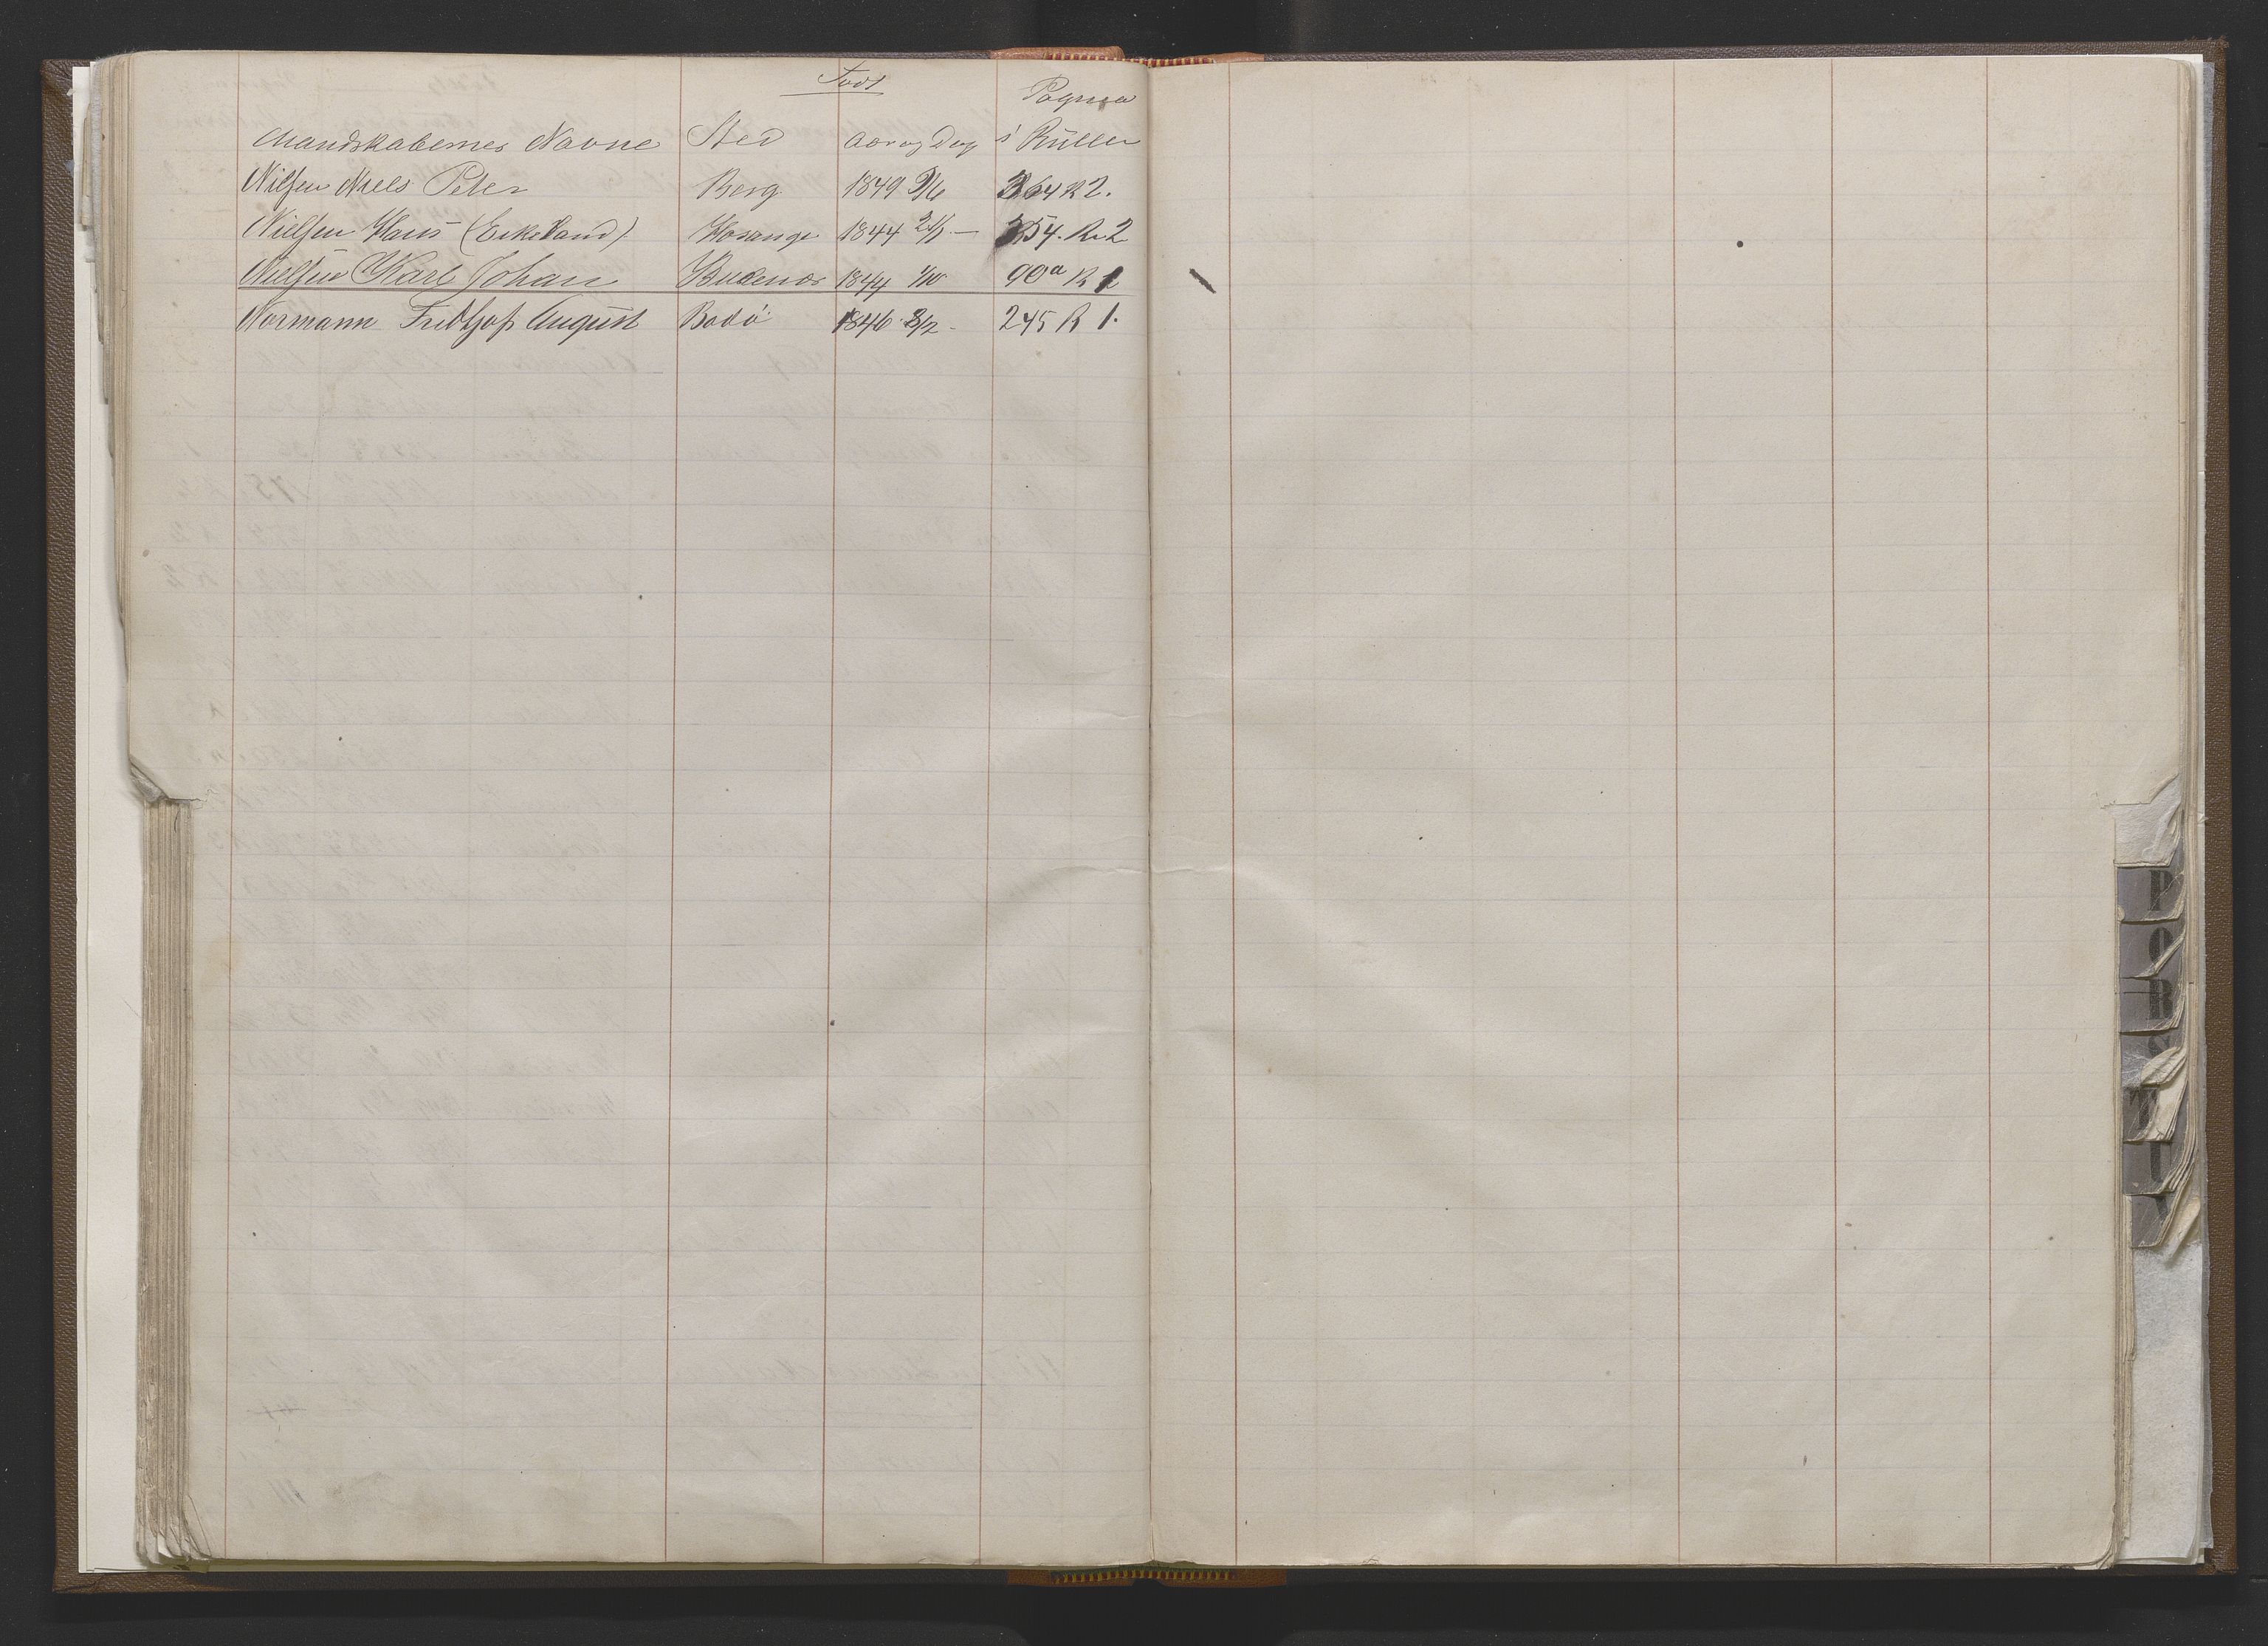 Født
Pagina
Mandskabernes Navne Sted Aar og Dag i Rullen
Nilsen Niels Peter Berg 1849 9/6 364 R 2.
Nielsen Hans (Eikeland) Hosanger 1844 21/1 — 254. R. 2
Nielsen Karl Johan Budenæs 1844 1/10 90a R 1
Normann Fridtjof August Bodö 1846 3/12 - 245 R 1.
P
Q
R
S
T
U
V